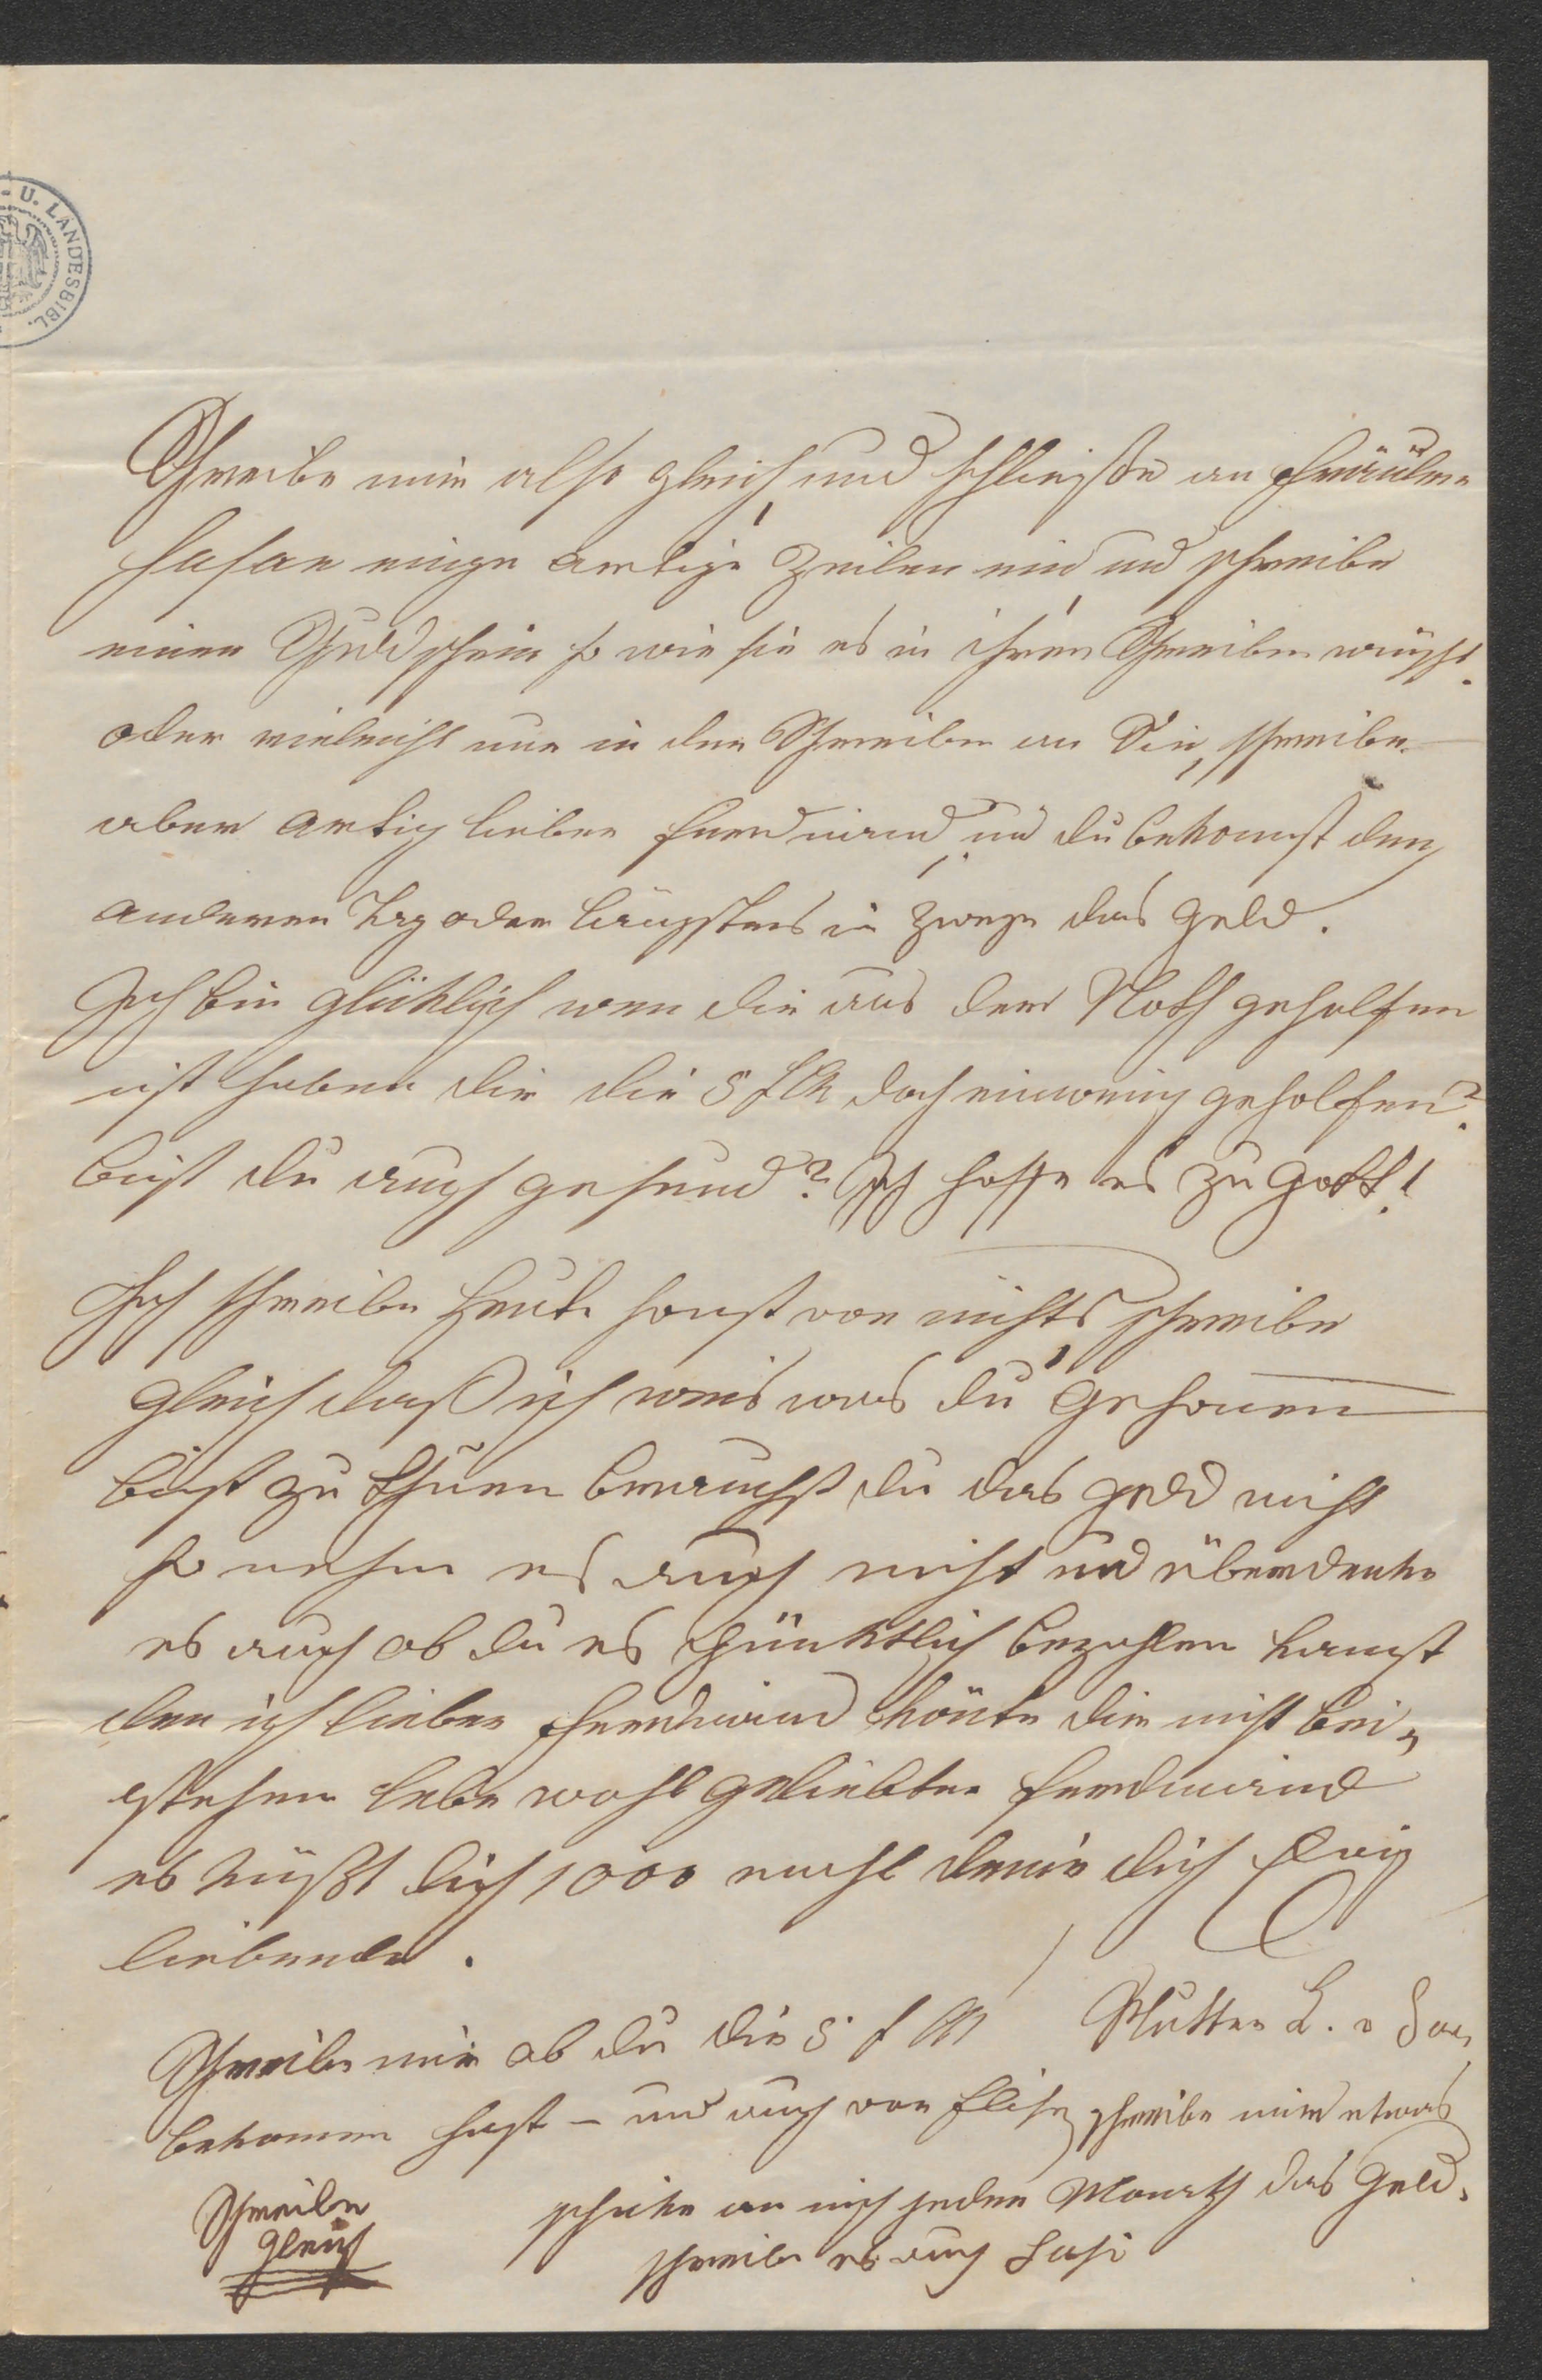 - U. LANDESBIBL.
Schreibe mir also gleich, und schließe an Fräulein
einige artige Zeilen ein, und schreibe
einen Schuldschein so wie sie es in ihren Schreiben wünscht.
oder vieleicht nur in den Schreiben an Sie, schreibe
aber artig lieber Ferdinand, und du bekomst den
anderen Tag oder längstens in zweye das Geld.
Ich bin glüklich wen dir aus der Noth geholfen
ist haben dir die 5 f CM doch einwenig geholfen?
bist du auch gesund? Ich hoffe es zu Gott!
Ich schreibe heute sonst von nichts, schreibe
gleich daß ich weis was du gesonnen
bist zu thuen brauchst du das Geld nicht
so nehm es auch nicht und überdenke
es auch ob du es pünktlich bezahlen kanst
den ich lieber Ferdinand könte dir nicht bei-
stehen lebe wohl geliebter Ferdinand
es küßt dich 1000 mahl deine dich Ewig
liebende.
Mutter L. v
Schreibe mir ob du die 5 f CM
bekomen hast – und auch von Elise schreibe mir etwas
schike an mich jeden Monath das Geld.
schreibe es auch
Schreibe
gleich